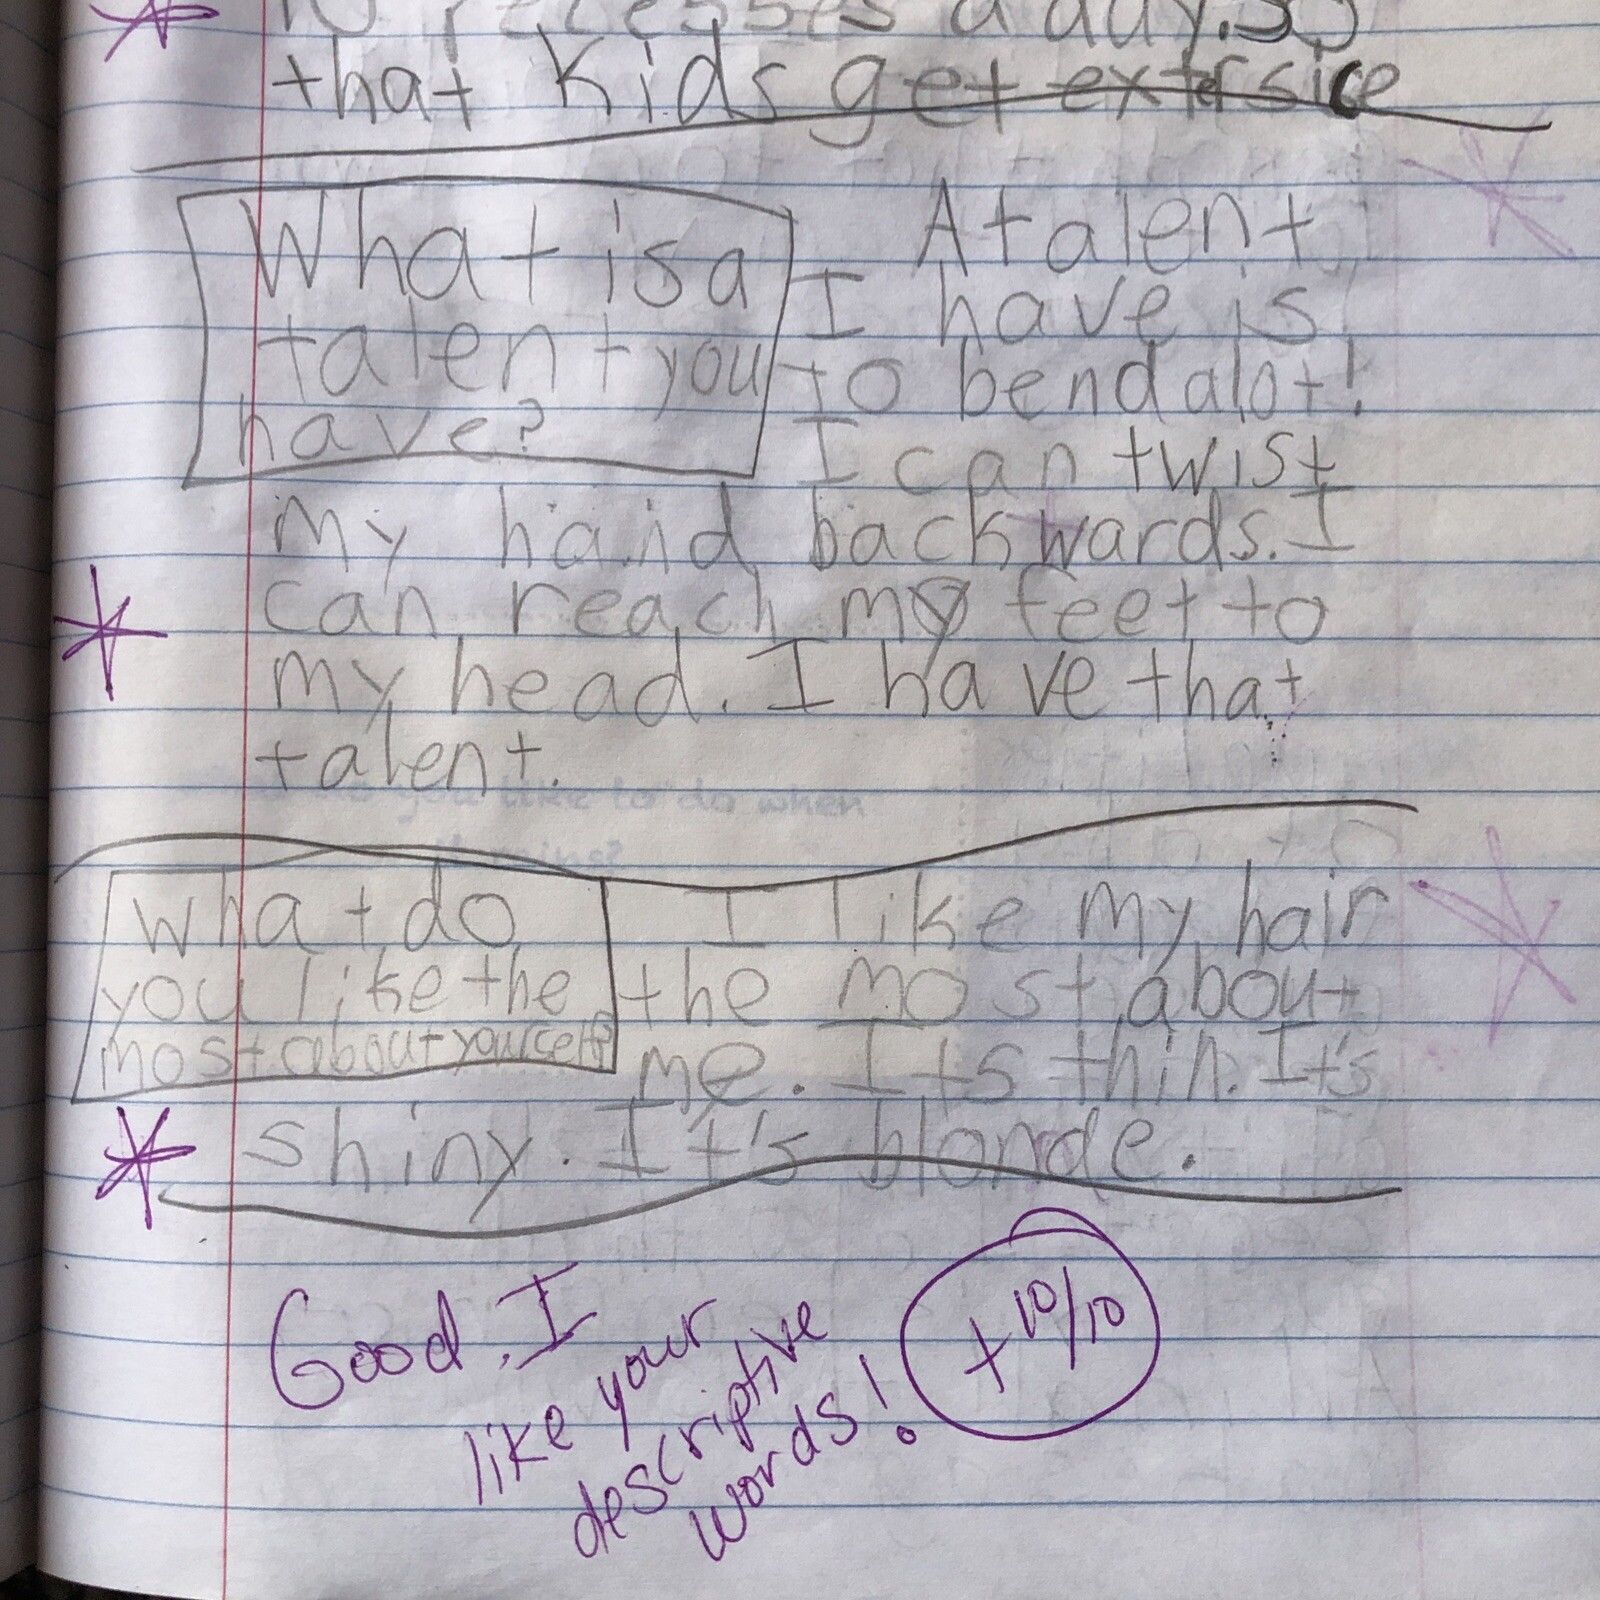 10 recesses a day. so
that kids get extersice
What is a
talent you
have?
A talent
I have is
to bend alot!
I can twist
my hand backwards. I
can reach my feet to
my head. I have that
talent.
you like to do when
What do
you like the
most about yourself?
I like my hair
the most about
me. Its thin. It's
shiny. It's blonde.
Good. I
like your
descriptive
words!
+10/10